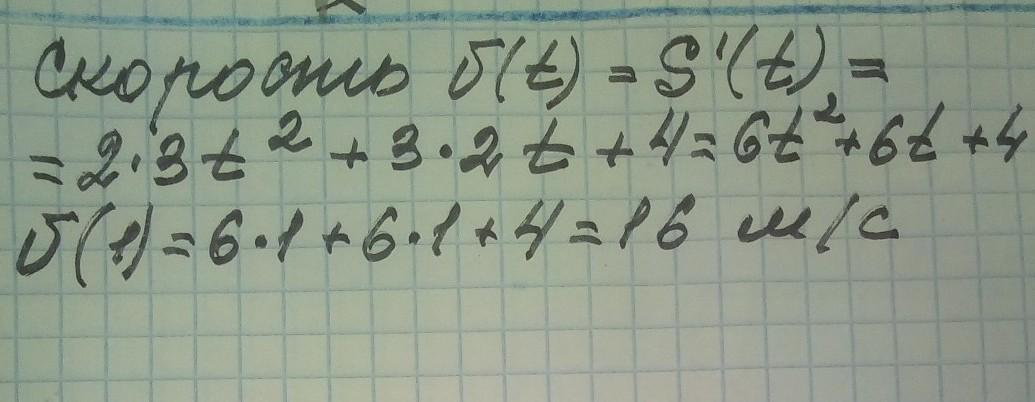 Скорость υ(t) = S'(t) =
= 2·3t² + 3·2t + 4 = 6t² + 6t + 4
υ(1) = 6·1 + 6·1 + 4 = 16 м/с